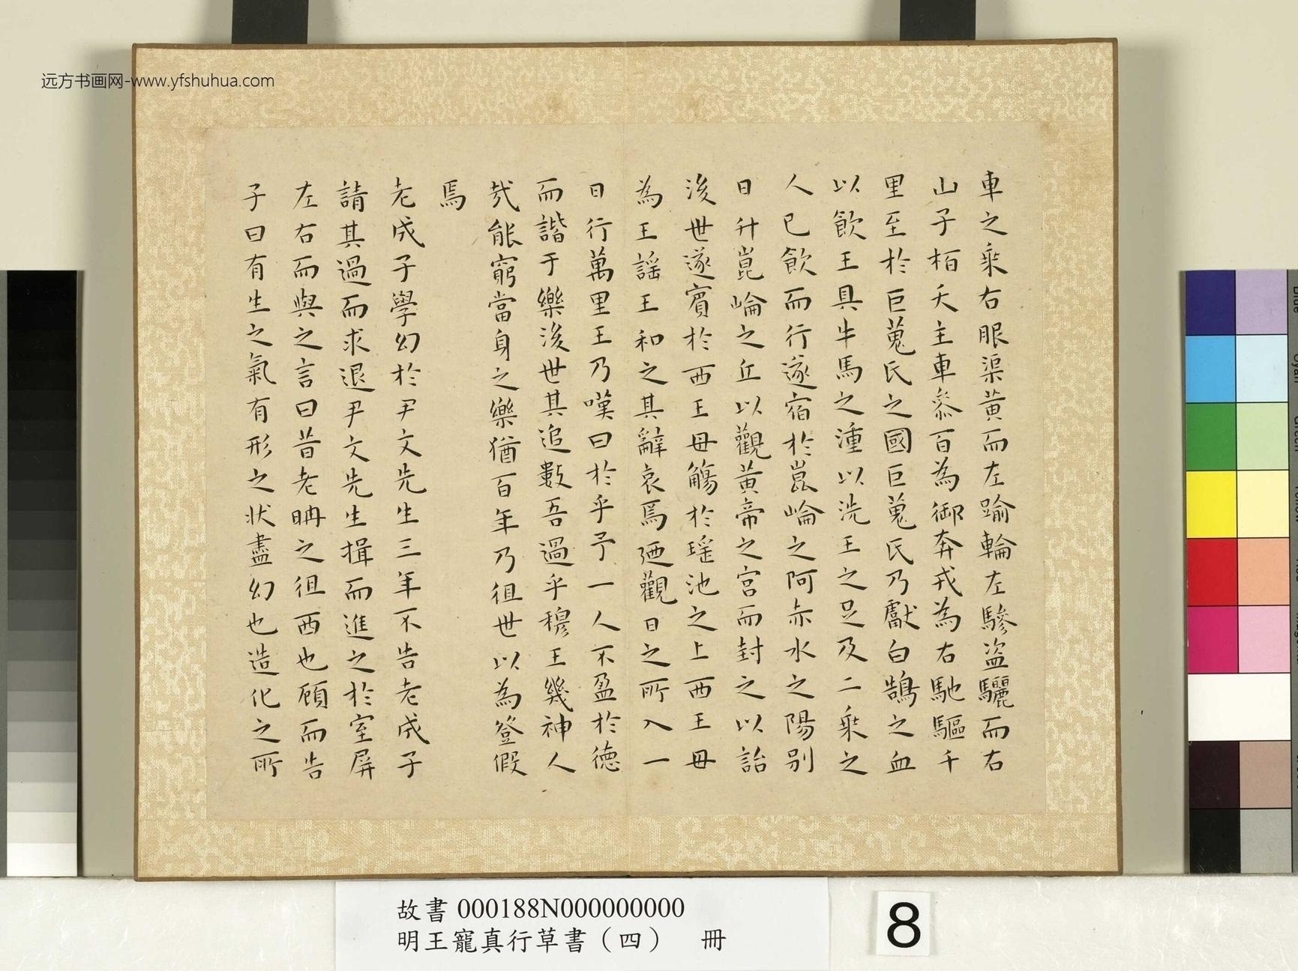 远方书画网-www.yfshuhua.com
車之乘右服渠黃而左踰輪左驂盗驪而右
山子栢夭主車參百為御奔戎為右馳驅千
里至於巨蒐氏之國巨蒐氏乃獻白鵠之血
以飲王具牛馬之湩以洗王之足及二乘之
人已飲而行遂宿於崑崙之阿赤水之陽別
日升崑崙之丘以觀黃帝之宮而封之以詒
後世遂賓於西王母觴於瑤池之上西王母
為王謡王和之其辭哀焉廼觀日之所入一
日行萬里王乃嘆曰於乎予一人不盈於德
而諧于樂後世其追數吾過乎穆王幾神人
㦲能窮當身之樂猶百年乃徂世以為登假
焉
老成子學幻於尹文先生三年不告老成子
請其過而求退尹文先生揖而進之於室屏
左右而與之言曰昔老聃之徂西也顧而告
予曰有生之氣有形之狀盡幻也造化之所
故書 000188N000000000
明王寵真行草書（四） 冊
8